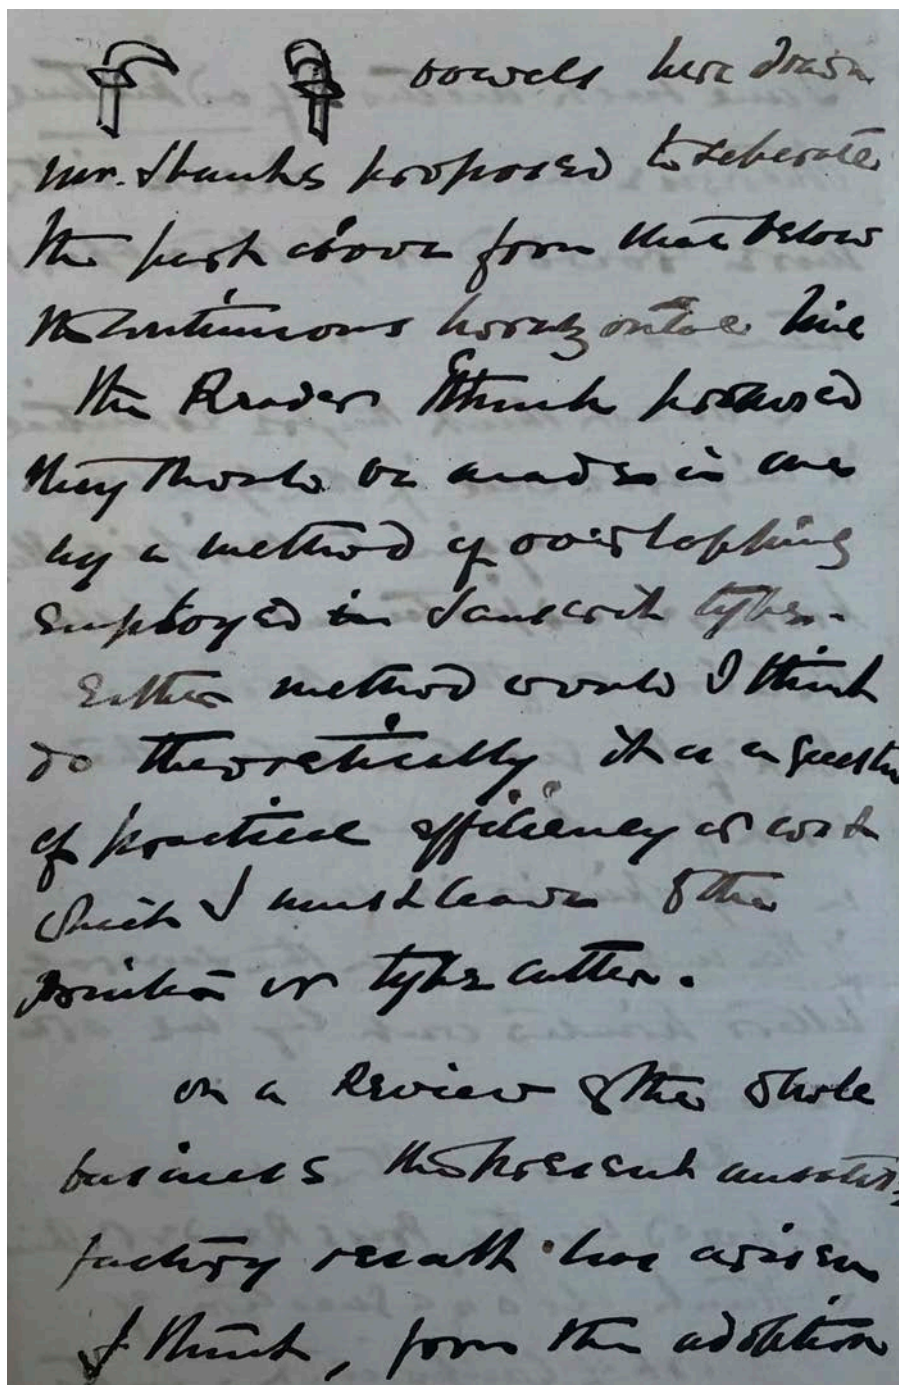 vowels here drawn
Mr. Shanks proposed to separate
the part above from that below
the continuous horizontal line
The Reader I think proposed
they should be made in one
by a method of overlapping
employed in Sanscrit types.
Either method would I think
do theoretically it is a question
of practical efficiency or cost
which I must leave to the
printer or type cutter.
On a review of the whole
business the present unsatis-
factory result has arisen
I think, from the adoption